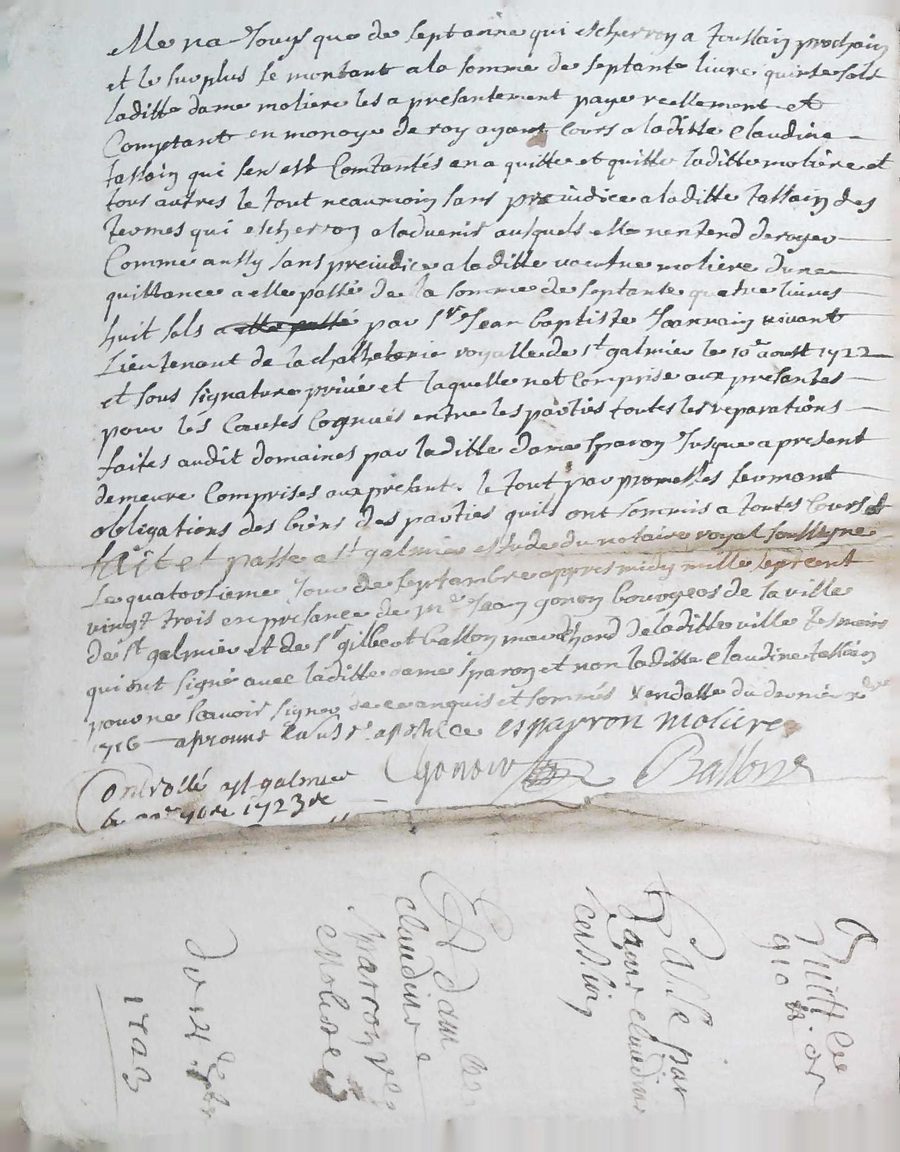 elle na Jouy que de septanne qui escherron a toussain prochain
et le surplus se montant a la somme de septante livre quinse sols
laditte dame moliere les a presantement paye reellement et
Comptant en monoye de roy ayant Cours a laditte Claudine
tassain qui sen est Comtantés en a quitte et quitte laditte moliere et
tous autres le tout neaumoin sans preiudice a laditte tassain des
termes qui escherron a ladvenir ausquels elle nentend deroger
Comme aussy sans preiudice a laditte vaeufve moliere dune
quittance a elle passé de la somme de septante quatre livres
huit sols a elle passé par sr Jean baptiste Jeanvain vivant
Lieutenant de la Chastelenie royalle de st galmier le 10e aoust 1722
et sous signature privé et laquelle net Comprise aux presantes
pour les Causes Cognues entre les partiés toutes les reparations
faites audit domaines par laditte dame sparon Jusque a present
demeure Comprises aux presant. le tout par promesses serment
obligations des biens des parties quils ont sommis a toutes Cours et
fait et passe a st galmier estude du notaire royal soussigne
Le quatorsieme Jour de septambre appres midy mille sept cent
vingt trois en presance de mr Jean gonon bourgeos de la ville
de st galmier et de sr gilbert ballon marchand de laditte ville tesmoins
qui ont signé avec laditte dame sparon et non laditte Claudine tassain
pour ne scavoir signer de ce anquis et sommés
1716 aprouvé
esparron moliere
Gonon Ballon
Controllé a st galmier
le 9bre 1723
Quittance
Passé par
dame claudine
tassin
A dame
claudine
sparron ve
Moliere
du 14 7bre
1723